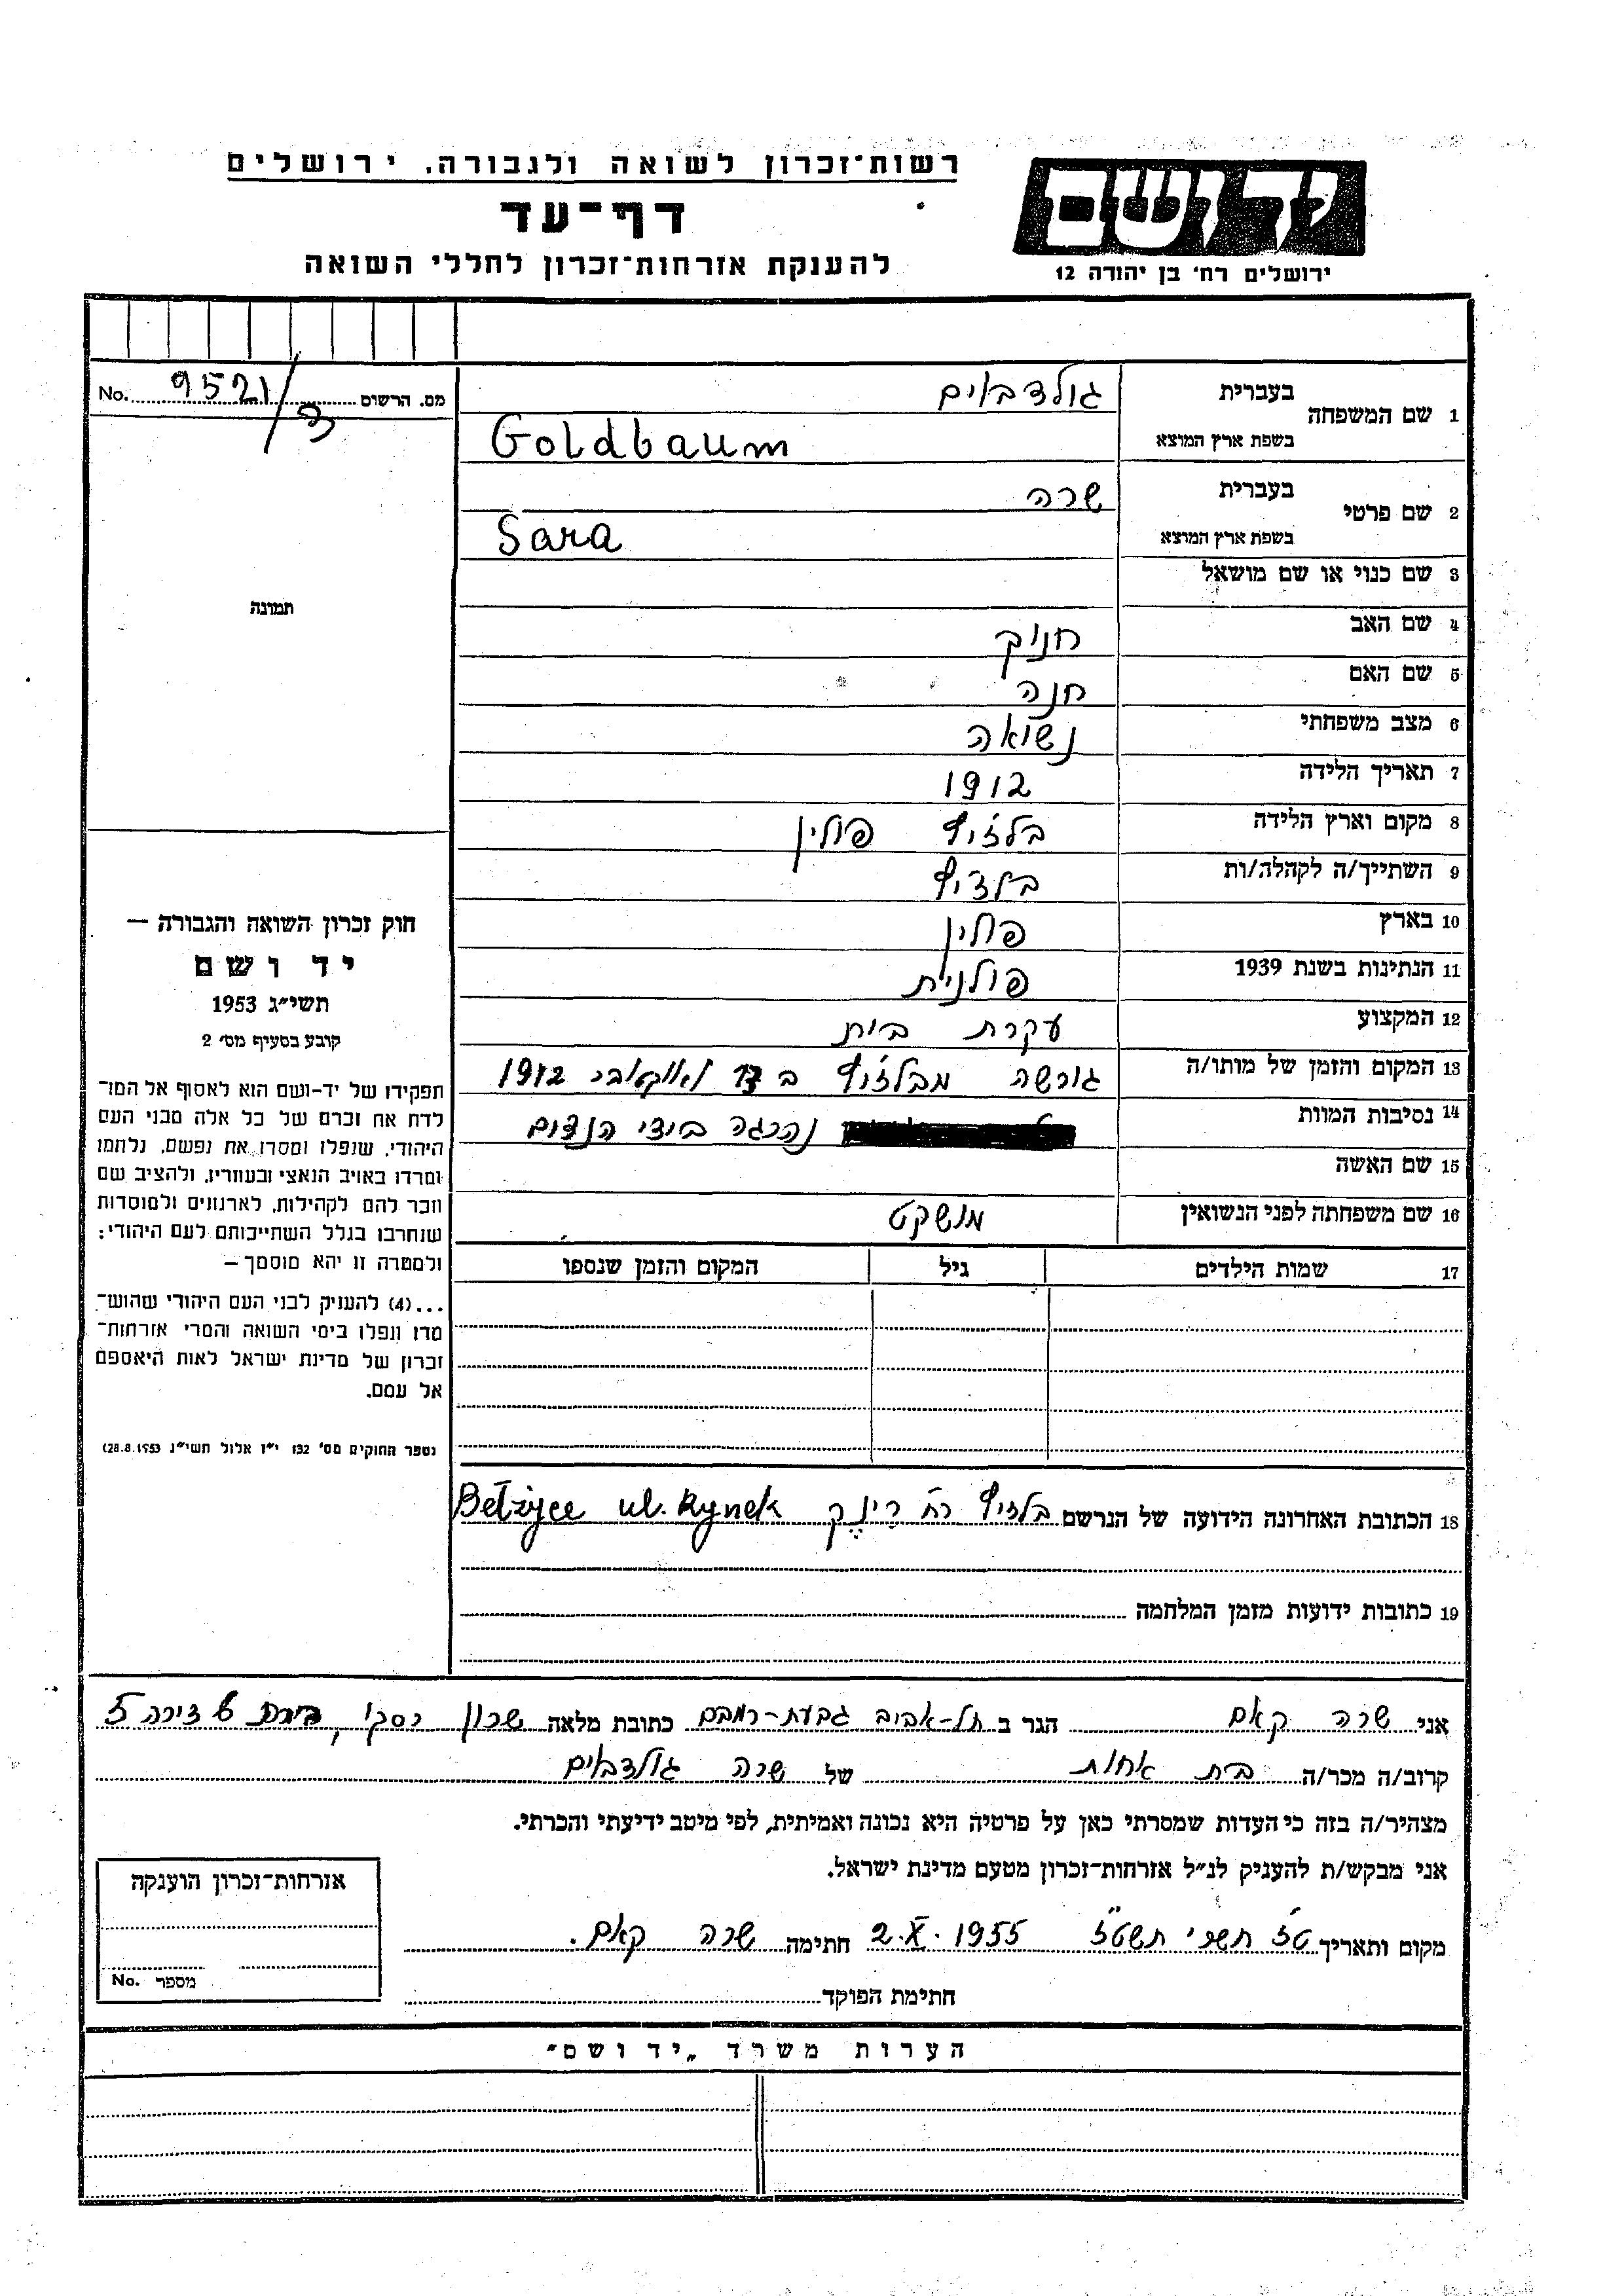 רשות־זכרון לשואה ולגבורה. ירושלים
דף־עד
להענקת אזרחות־זכרון לחללי השואה
יד ושם
ירושלים רח׳ בן יהודה 12
מס. הרשום 9521/ No.
תמונה
1 שם המשפחה בעברית גולדבאים
בשפת ארץ המוצא Goldbaum
2 שם פרטי בעברית שרה
בשפת ארץ המוצא Sara
3 שם כנוי או שם מושאל
4 שם האב חנוך
5 שם האם חנה
6 מצב משפחתי נשואה
7 תאריך הלידה 1912
8 מקום וארץ הלידה בלזיץ פולין
9 השתייך/ה לקהלה/ות בלזיץ
10 בארץ פולין
11 הנתינות בשנת 1939 פולנית
12 המקצוע עקרת בית
13 המקום והזמן של מותו/ה גורשה מבלזיץ ב אוקטובר 1942
14 נסיבות המוות נהרגה בידי הנצים
15 שם האשה
16 שם משפחתה לפני הנשואין מושקט
17 שמות הילדים גיל המקום והזמן שנספו
18 הכתובת האחרונה הידועה של הנרשם בלזיץ רח׳ רינק Bełżyce ul. Rynek
19 כתובות ידועות מזמן המלחמה
חוק זכרון השואה והגבורה —
יד ושם
תשי״ג 1953
קובע בסעיף מס׳ 2
תפקידו של יד-ושם הוא לאסוף אל המו־
לדת את זכרם של כל אלה מבני העם
היהודי, שנפלו ומסרו את נפשם, נלחמו
ומרדו באויב הנאצי ובעוזריו, ולהציב שם
וזכר להם לקהילות, לארגונים ולמוסדות
שנחרבו בגלל השתייכותם לעם היהודי;
ולמטרה זו יהא מוסמך —
...(4) להעניק לבני העם היהודי שהוש־
מדו ונפלו בימי השואה והמרי אזרחות־
זכרון של מדינת ישראל לאות היאספם
אל עמם.
(ספר החוקים מס׳ 132 י״ז אלול תשי״ג 28.8.1953)
אני שרה קאם הגר ב תל-אביב גבעת-רמבם כתובת מלאה שכון רסקו, 6 דירה 5
קרוב/ה מכר/ה בית אחות של שרה גולדבאים
מצהיר/ה בזה כי העדות שמסרתי כאן על פרטיה היא נכונה ואמיתית, לפי מיטב ידיעתי והכרתי.
אני מבקש/ת להעניק לנ״ל אזרחות-זכרון מטעם מדינת ישראל.
מקום ותאריך ט״ז תשרי תשט״ז 2.X.1955 חתימה שרה קאם.
חתימת הפוקד
אזרחות־זכרון הוענקה
מספר No.
הערות משרד „יד ושם״